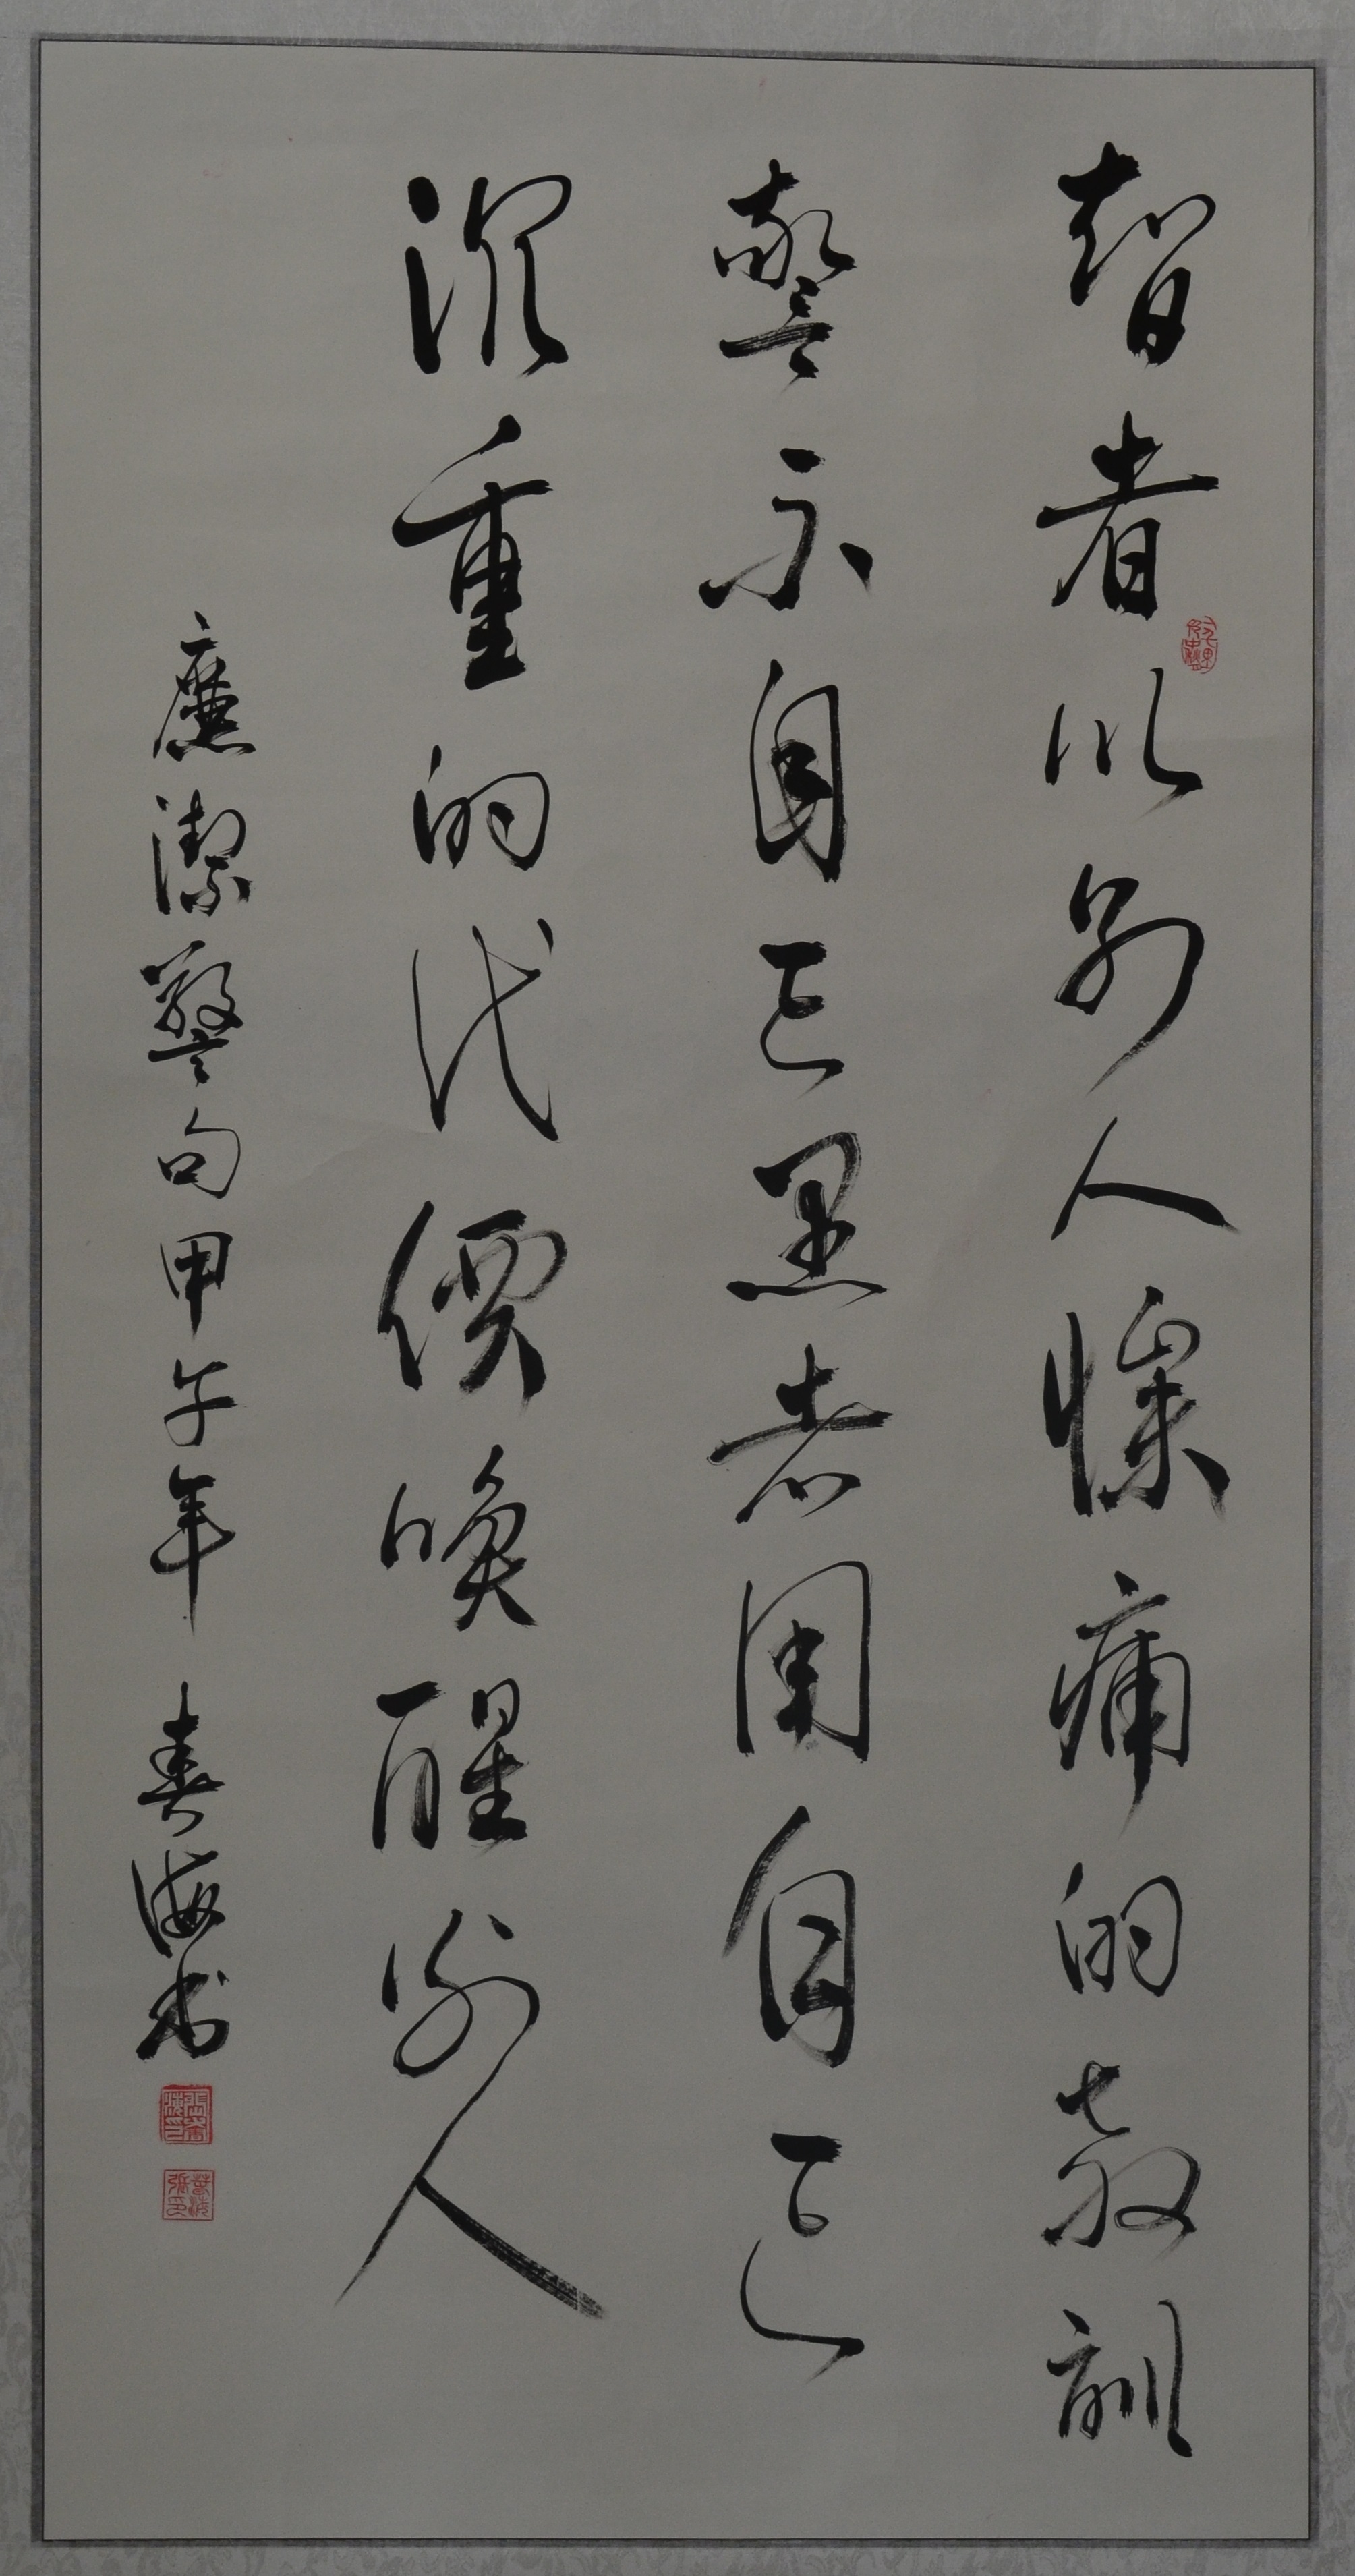 智者以別人慘痛的教訓
警示自己愚者用自己
沉重的代價喚醒別人
廉潔警句甲午年 春海书